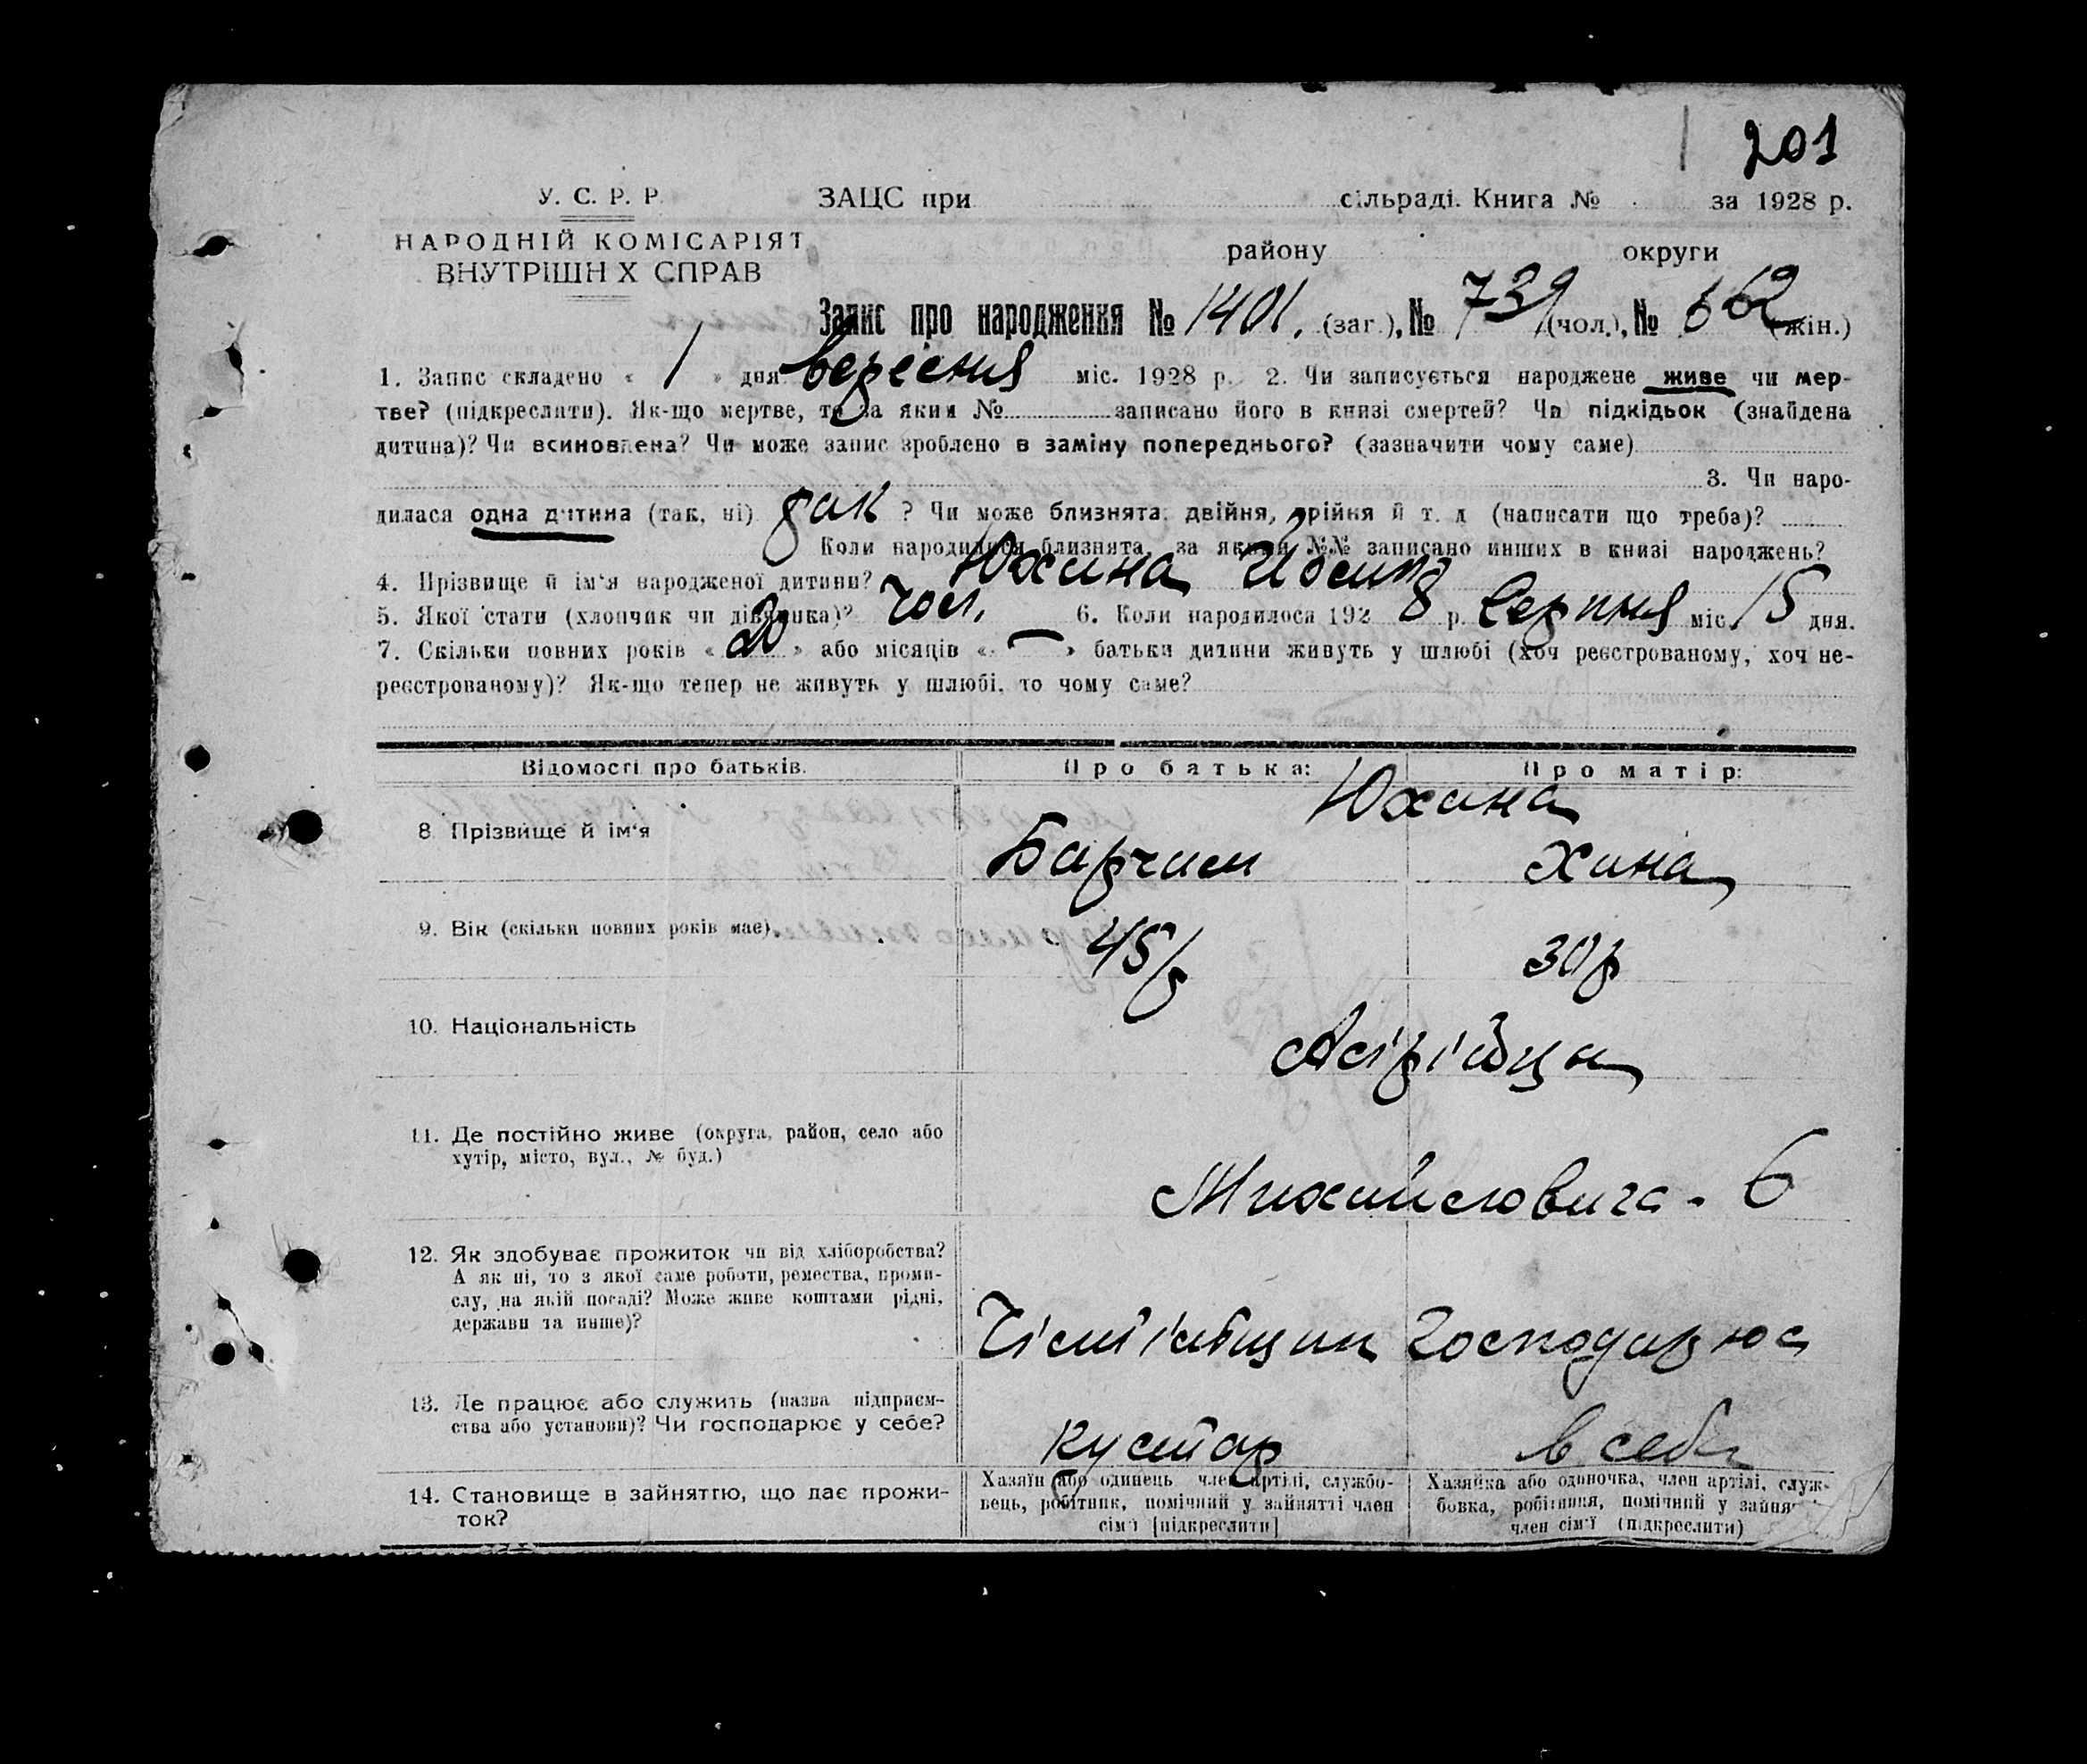 201
У. С. Р. Р. ЗАЦС при сільраді. Книга № за 1928 р.
НАРОДНІЙ КОМІСАРІЯТ району округи
ВНУТРІШН Х СПРАВ
Запис про народження № 1401. (заг.), № 739 (чол.), № 662 (жін.)
1. Запис складено « 1 » дня вересня міс. 1928 р. 2. Чи записується народжене живе чи мер-
тве? (підкреслити). Як-що мертве, то за яким № записано його в книзі смертей? Чи підкідьок (знайдена
дитина)? Чи всиновлена? Чи може запис зроблено в заміну попереднього? (зазначити чому саме)
3. Чи наро-
дилася одна дитина (так, ні) так ? Чи може близнята: двійня, трійня й т. д (написати що треба)?
Коли народилися близнята, за якими №№ записано инших в книзі народжень?
4. Прізвище й ім'я народженої дитини? Юхана Йосип
5. Якої стати (хлопчик чи дівчинка)? Чол. 6. Коли народилося 192 8 р. Серпня міс. 15 дня.
7. Скільки повних років « 20 » або місяців « — » батьки дитини живуть у шлюбі (хоч реєстрованому, хоч не-
реєстрованому)? Як-що тепер не живуть у шлюбі, то чому саме?
Відомості про батьків. Про батька: Про матір:
Юхана
8. Прізвище й ім'я Барчим Хана
9. Вік (скільки повних років має). 45р 30р
10. Національність Асірійци
11. Де постійно живе (округа, район, село або
хутір, місто, вул., № буд.)
Михайловича - 6
12. Як здобуває прожиток чи від хліборобства?
А як ні, то з якої саме роботи, ремества, проми-
слу, на якій посаді? Може живе коштами рідні,
держави та инше)?
Чістільщик Господарює
13. Де працює або служить (назва підприєм-
ства або установи)? Чи господарює у себе?
кустар в себе
14. Становище в зайняттю, що дає прожи-
ток?
Хазяїн або одинець член артілі, службо-
вець, робітник, помічний у зайнятті член
сім'ї [підкреслити]
Хазяйка або одиночка, член артілі, служ-
бовка, робітниця, помічний у зайня
член сім'ї (підкреслити)